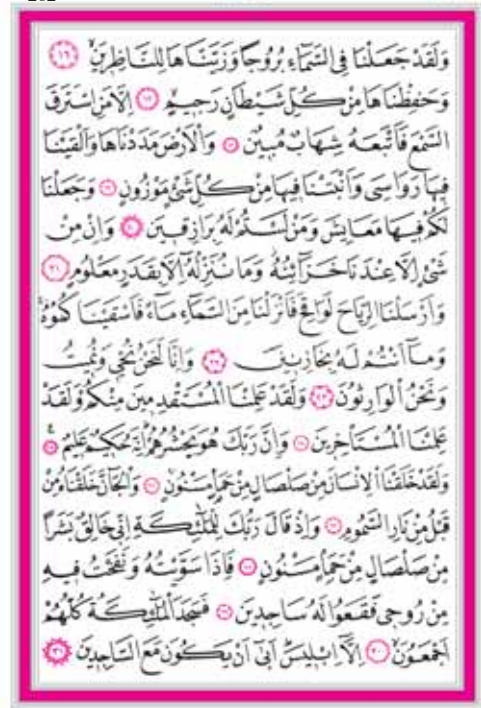 وَلَقَدْ جَعَلْنَا فِي السَّمَٓاءِ بُرُوجًا وَزَيَّنَّاهَا لِلنَّاظِر۪ينَۙ ﴿١٦﴾
وَحَفِظْنَاهَا مِنْ كُلِّ شَيْطَانٍ رَج۪يمٍۙ ﴿١٧﴾ اِلَّا مَنِ اسْتَرَقَ
السَّمْعَ فَاَتْبَعَهُ شِهَابٌ مُب۪ينٌ ﴿١٨﴾ وَالْاَرْضَ مَدَدْنَاهَا وَاَلْقَيْنَا
ف۪يهَا رَوَاسِيَ وَاَنْبَتْنَا ف۪يهَا مِنْ كُلِّ شَيْءٍ مَوْزُونٍ ﴿١٩﴾ وَجَعَلْنَا
لَكُمْ ف۪يهَا مَعَايِشَ وَمَنْ لَسْتُمْ لَهُ بِرَازِق۪ينَ ﴿٢٠﴾ وَاِنْ مِنْ
شَيْءٍ اِلَّا عِنْدَنَا خَزَٓائِنُهُۘ وَمَا نُنَزِّلُهُٓ اِلَّا بِقَدَرٍ مَعْلُومٍ ﴿٢١﴾
وَاَرْسَلْنَا الرِّيَاحَ لَوَاقِحَ فَاَنْزَلْنَا مِنَ السَّمَٓاءِ مَٓاءً فَاَسْقَيْنَاكُمُوهُۚ
وَمَٓا اَنْتُمْ لَهُ بِخَازِن۪ينَ ﴿٢٢﴾ وَاِنَّا لَنَحْنُ نُحْي۪ وَنُم۪يتُ
وَنَحْنُ الْوَارِثُونَ ﴿٢٣﴾ وَلَقَدْ عَلِمْنَا الْمُسْتَقْدِم۪ينَ مِنْكُمْ وَلَقَدْ
عَلِمْنَا الْمُسْتَأْخِر۪ينَ ﴿٢٤﴾ وَاِنَّ رَبَّكَ هُوَ يَحْشُرُهُمْ اِنَّهُ حَك۪يمٌ عَل۪يمٌ ﴿٢٥﴾
وَلَقَدْ خَلَقْنَا الْاِنْسَانَ مِنْ صَلْصَالٍ مِنْ حَمَأٍ مَسْنُونٍ ﴿٢٦﴾ وَالْجَٓانَّ خَلَقْنَاهُ مِنْ
قَبْلُ مِنْ نَارِ السَّمُومِ ﴿٢٧﴾ وَاِذْ قَالَ رَبُّكَ لِلْمَلٰٓئِكَةِ اِنّ۪ي خَالِقٌ بَشَرًا
مِنْ صَلْصَالٍ مِنْ حَمَأٍ مَسْنُونٍ ﴿٢٨﴾ فَاِذَا سَوَّيْتُهُ وَنَفَخْتُ ف۪يهِ
مِنْ رُوح۪ي فَقَعُوا لَهُ سَاجِد۪ينَ ﴿٢٩﴾ فَسَجَدَ الْمَلٰٓئِكَةُ كُلُّهُمْ
اَجْمَعُونَۙ ﴿٣٠﴾ اِلَّٓا اِبْل۪يسَۜ اَبٰٓى اَنْ يَكُونَ مَعَ السَّاجِد۪ينَ ﴿٣١﴾